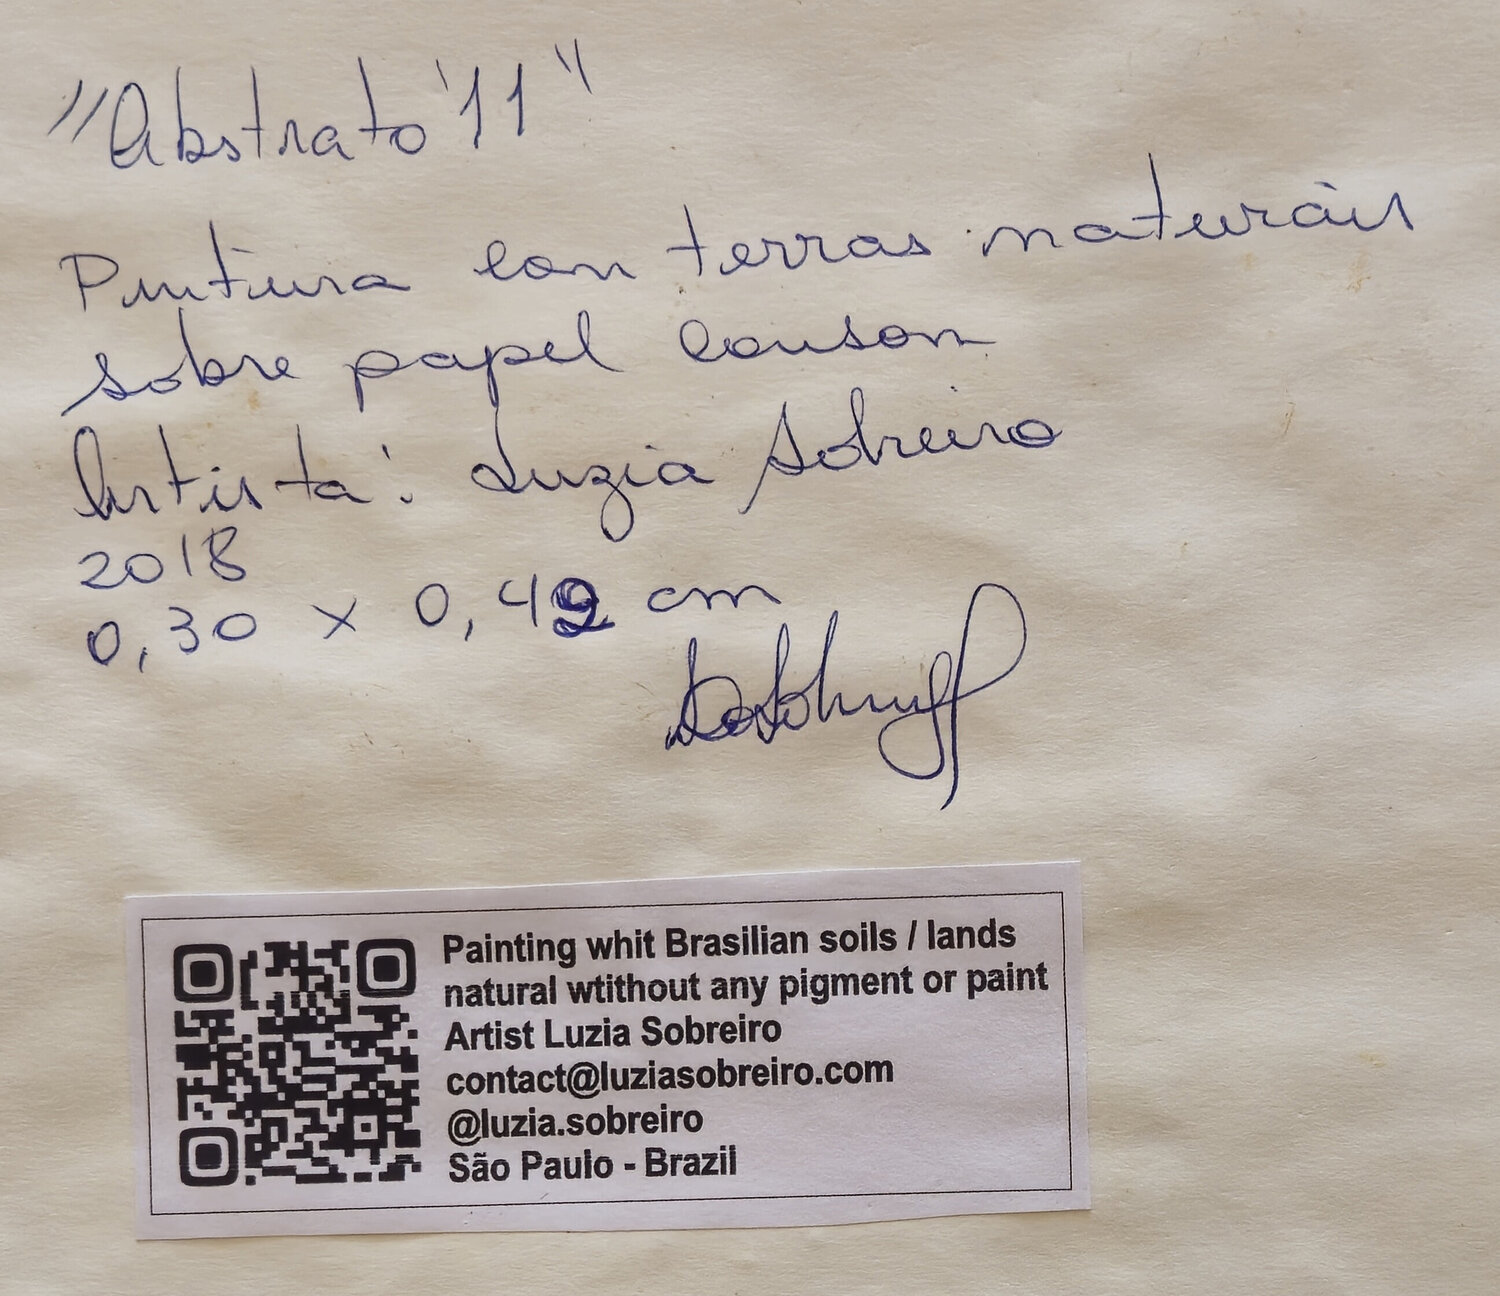 "Abstrato '11"
Pintura com terras naturais
sobre papel canson
Artista: Luzia Sobreiro
2018
0,30 x 0,42 cm
Painting whit Brasilian soils / lands
natural wtithout any pigment or paint
Artist Luzia Sobreiro
contact@luziasobreiro.com
@luzia.sobreiro
São Paulo - Brazil